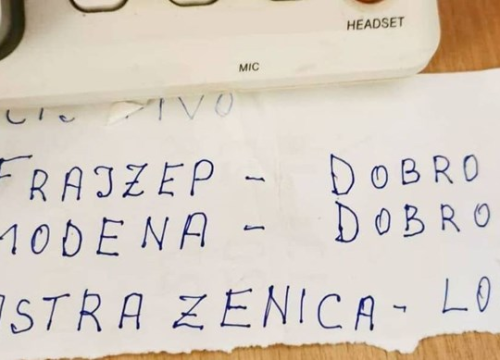 HEADSET
MIC
FRAJZEP - DOBRO
MODENA - DOBRO
ASTRA ZENICA - LO